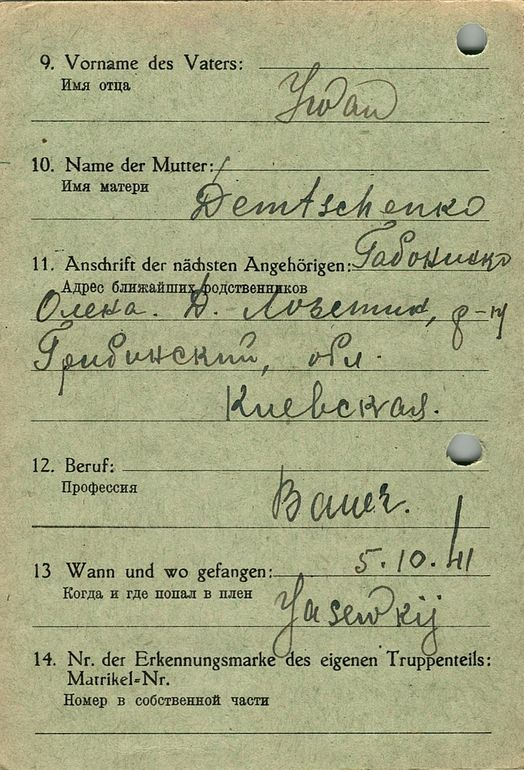 9. Vorname des Vaters:
Имя отца
Iwan
10. Name der Mutter:
Имя матери
Demtschenko
11. Anschrift der nächsten Angehörigen: Габонинко
Адрес ближайших родственников
Олена. Д. 
Грибинский, обл.
Киевская.
12. Beruf:
Профессия
Bauer.
13 Wann und wo gefangen: 5.10.41
Когда и где попал в плен
Jasewkij
14. Nr. der Erkennungsmarke des eigenen Truppenteils:
Matrikel-Nr.
Номер в собственной части